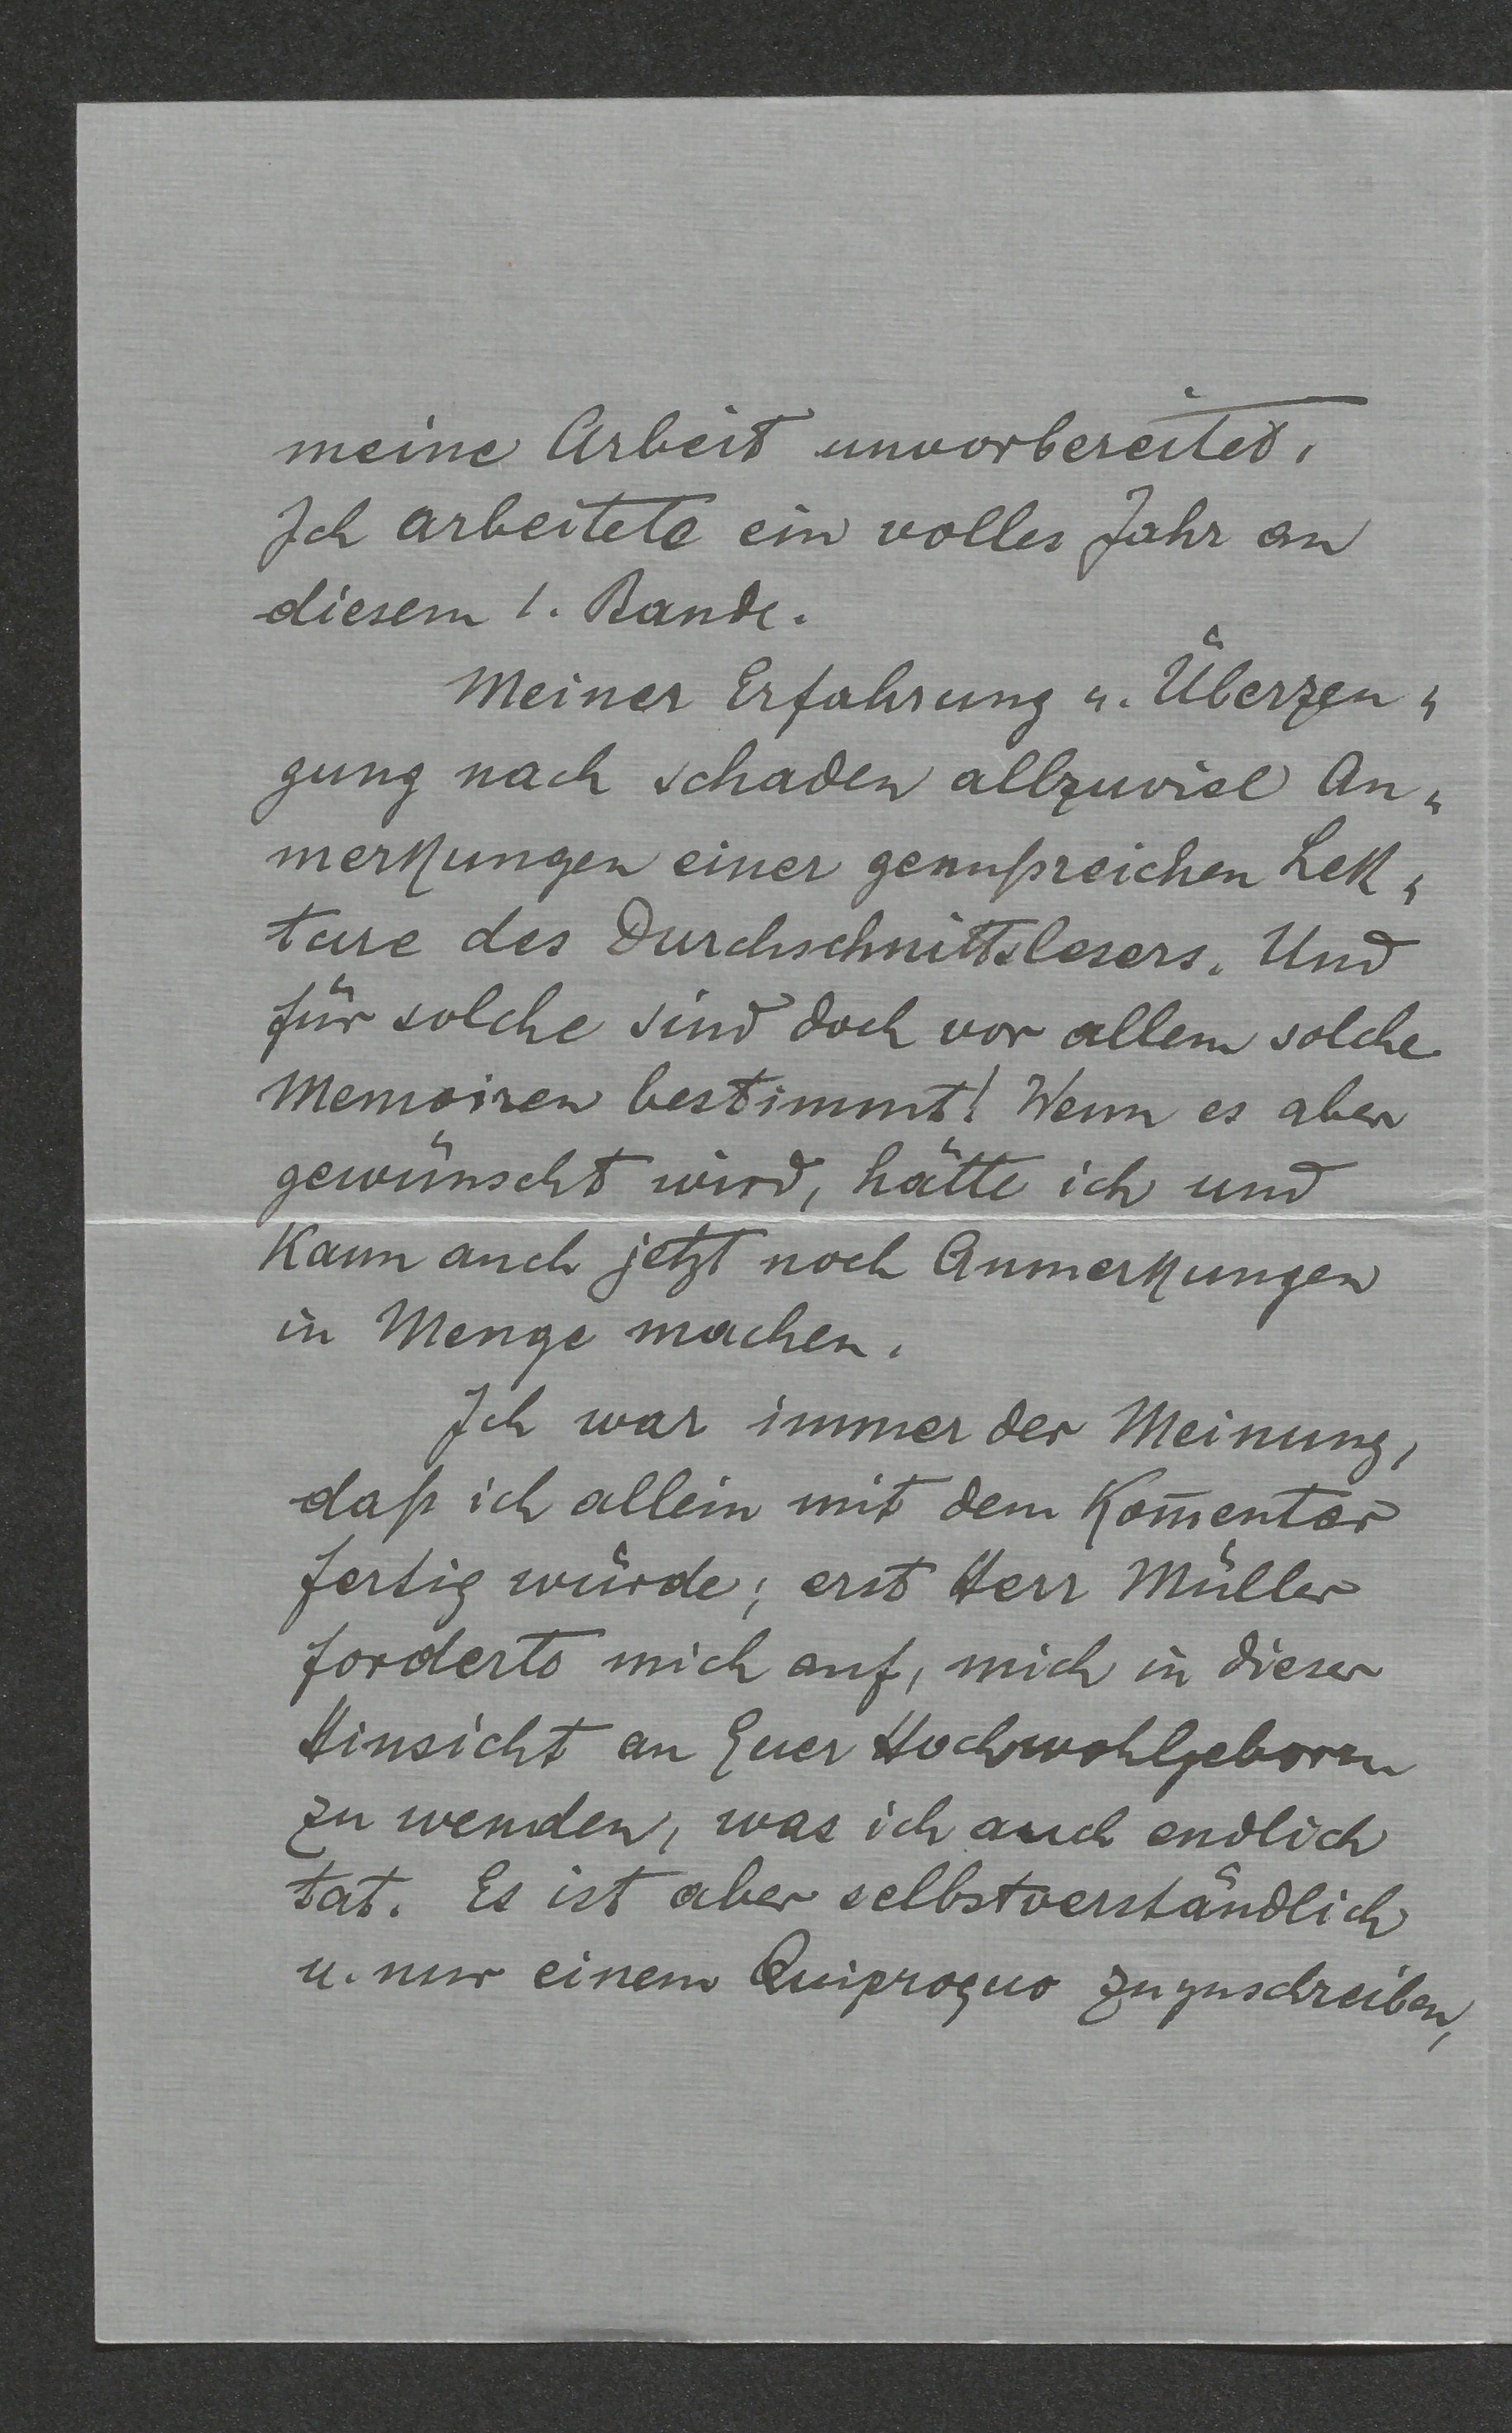 meine Arbeit unvorbereitet.
Ich arbeitete ein volles Jahr an
diesem 1. Bande.
Meiner Erfahrung u. Überzeu„
gung nach schaden allzuviel An„
merkungen einer genußreichen Lek„
ture des Durchschnittslesers. Und
für solche sind doch vor allem solche
Memoiren bestimmt! Wenn es aber
gewünscht wird, hätte ich und
kann auch jetzt noch Anmerkungen
in Menge machen.
Ich war immer der Meinung,
daß ich allein mit dem Kom̄entar
fertig würde; erst Herr Müller
forderte mich auf, mich in dieser
Hinsicht an Euer Hochwohlgeboren
zu wenden, was ich auch endlich
tat. Es ist aber selbstverständlich
u. nur einem Quiproquo zuzuschreiben,